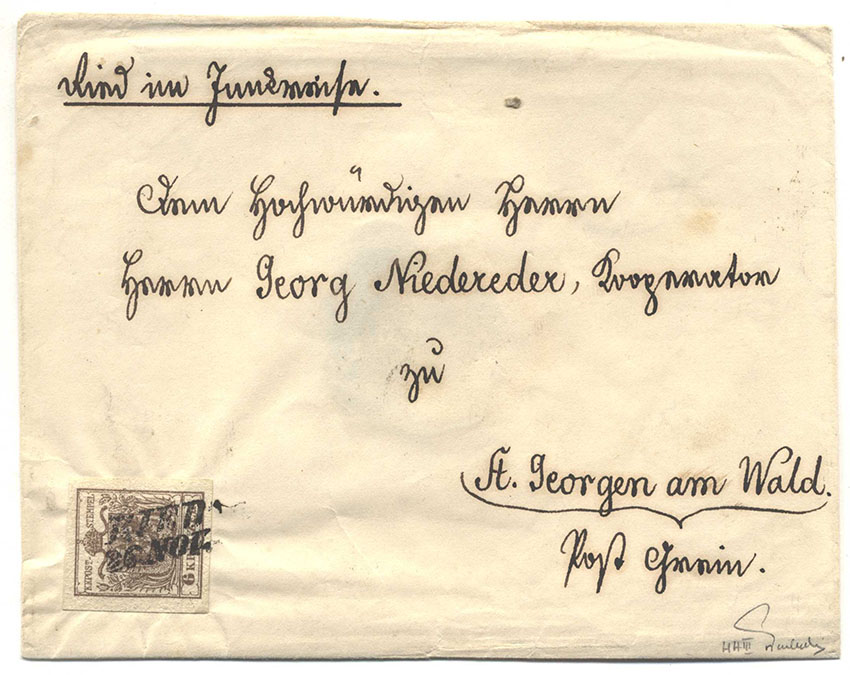 Ried im Innkreise.
Dem Hochwürdigen Herrn
Herrn Georg Niedereder, Kooperator
zu
St. Georgen am Wald.
Post Grein.
KKPOST-STEMPEL
6 KR
RIED
NOV.
HH III